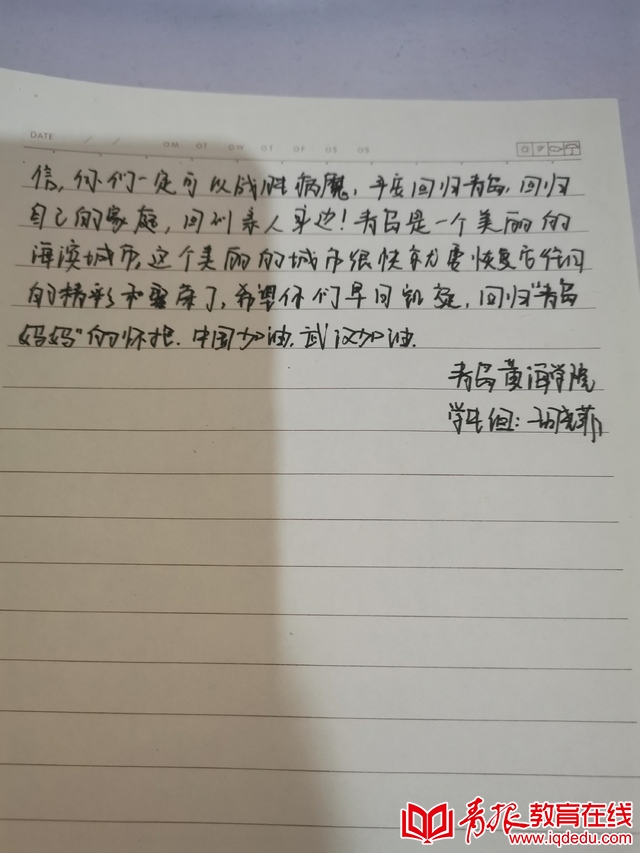 DATE / /
信，你们一定可以战胜病魔，平安回归青岛，回归
自己的家庭，回到亲人身边！青岛是一个美丽的
海滨城市，这个美丽的城市很快就要恢复它往日
的精彩和繁荣了，希望你们早日凯旋，回归“青岛
妈妈”的怀抱．中国加油．武汉加油．
青岛黄海学院
学生组：晓菲
青报教育在线
www.iqdedu.com